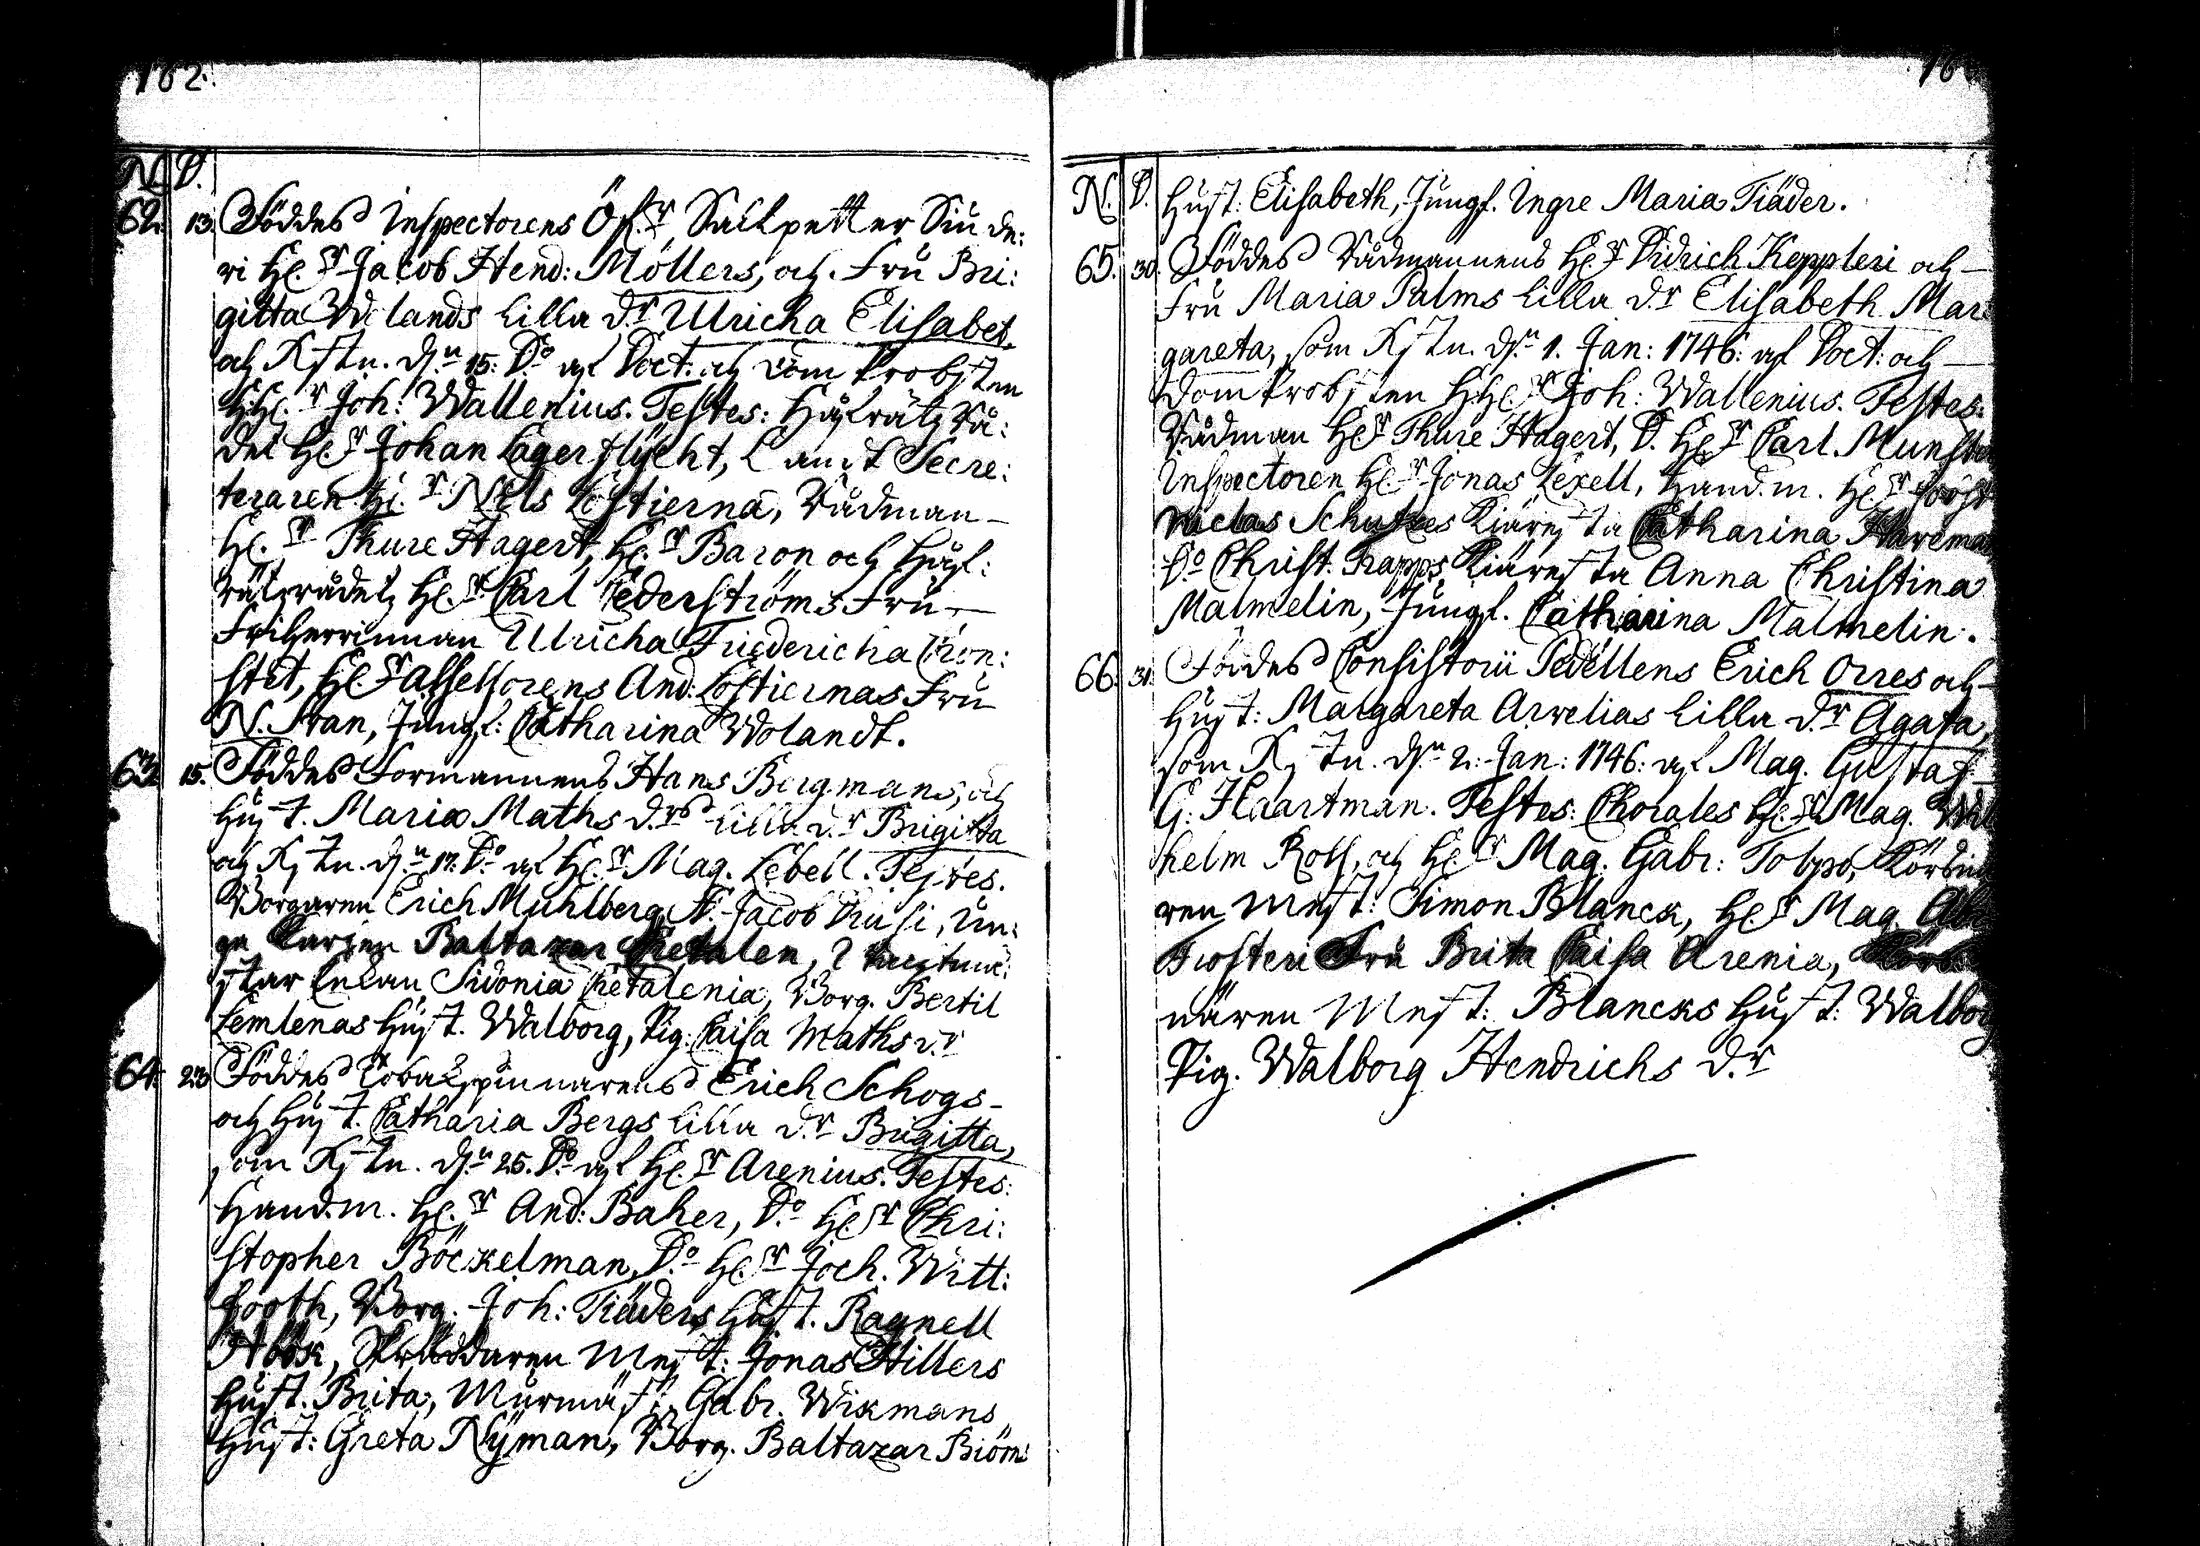 162.
N. D.
62. 13. Föddes Inspectorens Öf.r Saltpetter Siude:
ri He.r Jacob Hend: Möllers, och Fru Bri:
gitta Wolands lilla d.r Ulricha Elisabet,
och Xstn. d.n 15. D.o af Doct. och Domprobsten
HHe.r Joh: Wallenius. Testes: Håfrätz Rå:
det He.r Johan Lagerflycht, Landt Secre:
teraren He.r Nils Lostierna, Rådman
He.r Thure Hagert, He.r Baron och Håf:
rätzrådetz He.r Carl Cederströms Fru
Friherrinnan Ulricha Friedericha Cron:
stet, He.r assessorens And: Lostiernas Fru
N. Svan, Jungf: Catharina Wolandt.
63. 15. Föddes Formannens Hans Bergmans, och
Hust. Maria Maths d.rs lilla d.r Brigitta
och Xstn. d.n 17. D.o af He.r Mag. Lebell. Testes.
Borgaren Erich Muhlberg, D. Jacob Krusi, un:
ge Karlen Baltazar Cretalen, Kiegtmä:
star Enkan Sidonia Cretalenia, Borg. Bertil
Lemlenas Hust. Walborg, Pig. Caisa Maths d.r
64. 23. Föddes Tobakspinnarens Erich Schogs
och Hust. Catharia Bergs lilla d.r Brigitta,
som Xstn. d.n 25. D.o af He.r Arenius. Testes:
Handm. He.r And: Baher, D.o He.r Chri:
stopher Böckelman, D.o He.r Joch. Witt:
footh, Borg. Joh: Tiäders Hust. Ragnell
Höök, Skräddaren Mest: Jonas Hillers
Hust. Brita, Murmäst: Gabr. Wikmans
Hust: Greta Nyman, Borg. Baltazar Biöms
N. D. Hust: Elisabeth, Jungf. Ingre Maria Tiäder.
65. 30. Föddes Rådmannens He.r Didrich Keppleri och
Fru Maria Palms lilla d.r Elisabeth Mar
gareta, som Xstn. d.n 1. Jan: 1746: af Doct: och
Domprobsten HHe.r Joh: Wallenius. Testes:
Rådman He.r Thure Hagert, D. He.r Carl. Munster
Inspectoren He.r Jonas Lexell, Handm. He.r Joost
Niclas Schultzes Kiäresta Catharina Hareman
D.o Christ. Trapps Kiäresta Anna Christina
Malmelin, Jungf. Catharina Malmelin.
66. 31. Föddes Consistorii Pedellens Erich Orres och
Hust: Margareta Arvelias lilla d.r Agata,
som Xstn. d.n 2. Jan: 1746: af Mag. Gustaf
G: Haartman. Testes: Chorales He.r Mag. Wil
helm Ross, och He.r Mag. Gabr: Tolpo, Körsnä
ren Mest: Simon Blanck, He.r Mag. Abr
Frosteri Fru Brita Caisa Arenia, Körs
nären Mest: Blancks Hust: Walborg
Pig. Walborg Hendrichs d.r